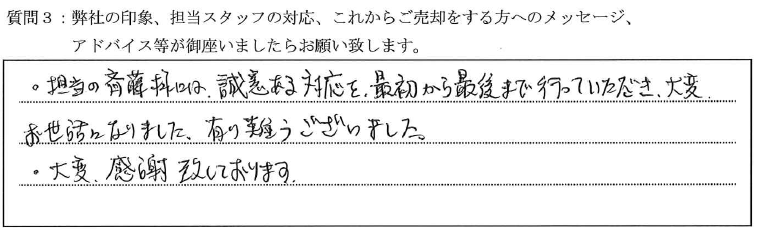 質問３：弊社の印象、担当スタッフの対応、これからご売却をする方へのメッセージ、
アドバイス等が御座いましたらお願い致します。
・担当の斉藤様には、誠意ある対応を、最初から最後まで行っていただき、大変、
お世話になりました、有り難うございました。
・大変、感謝致しております。